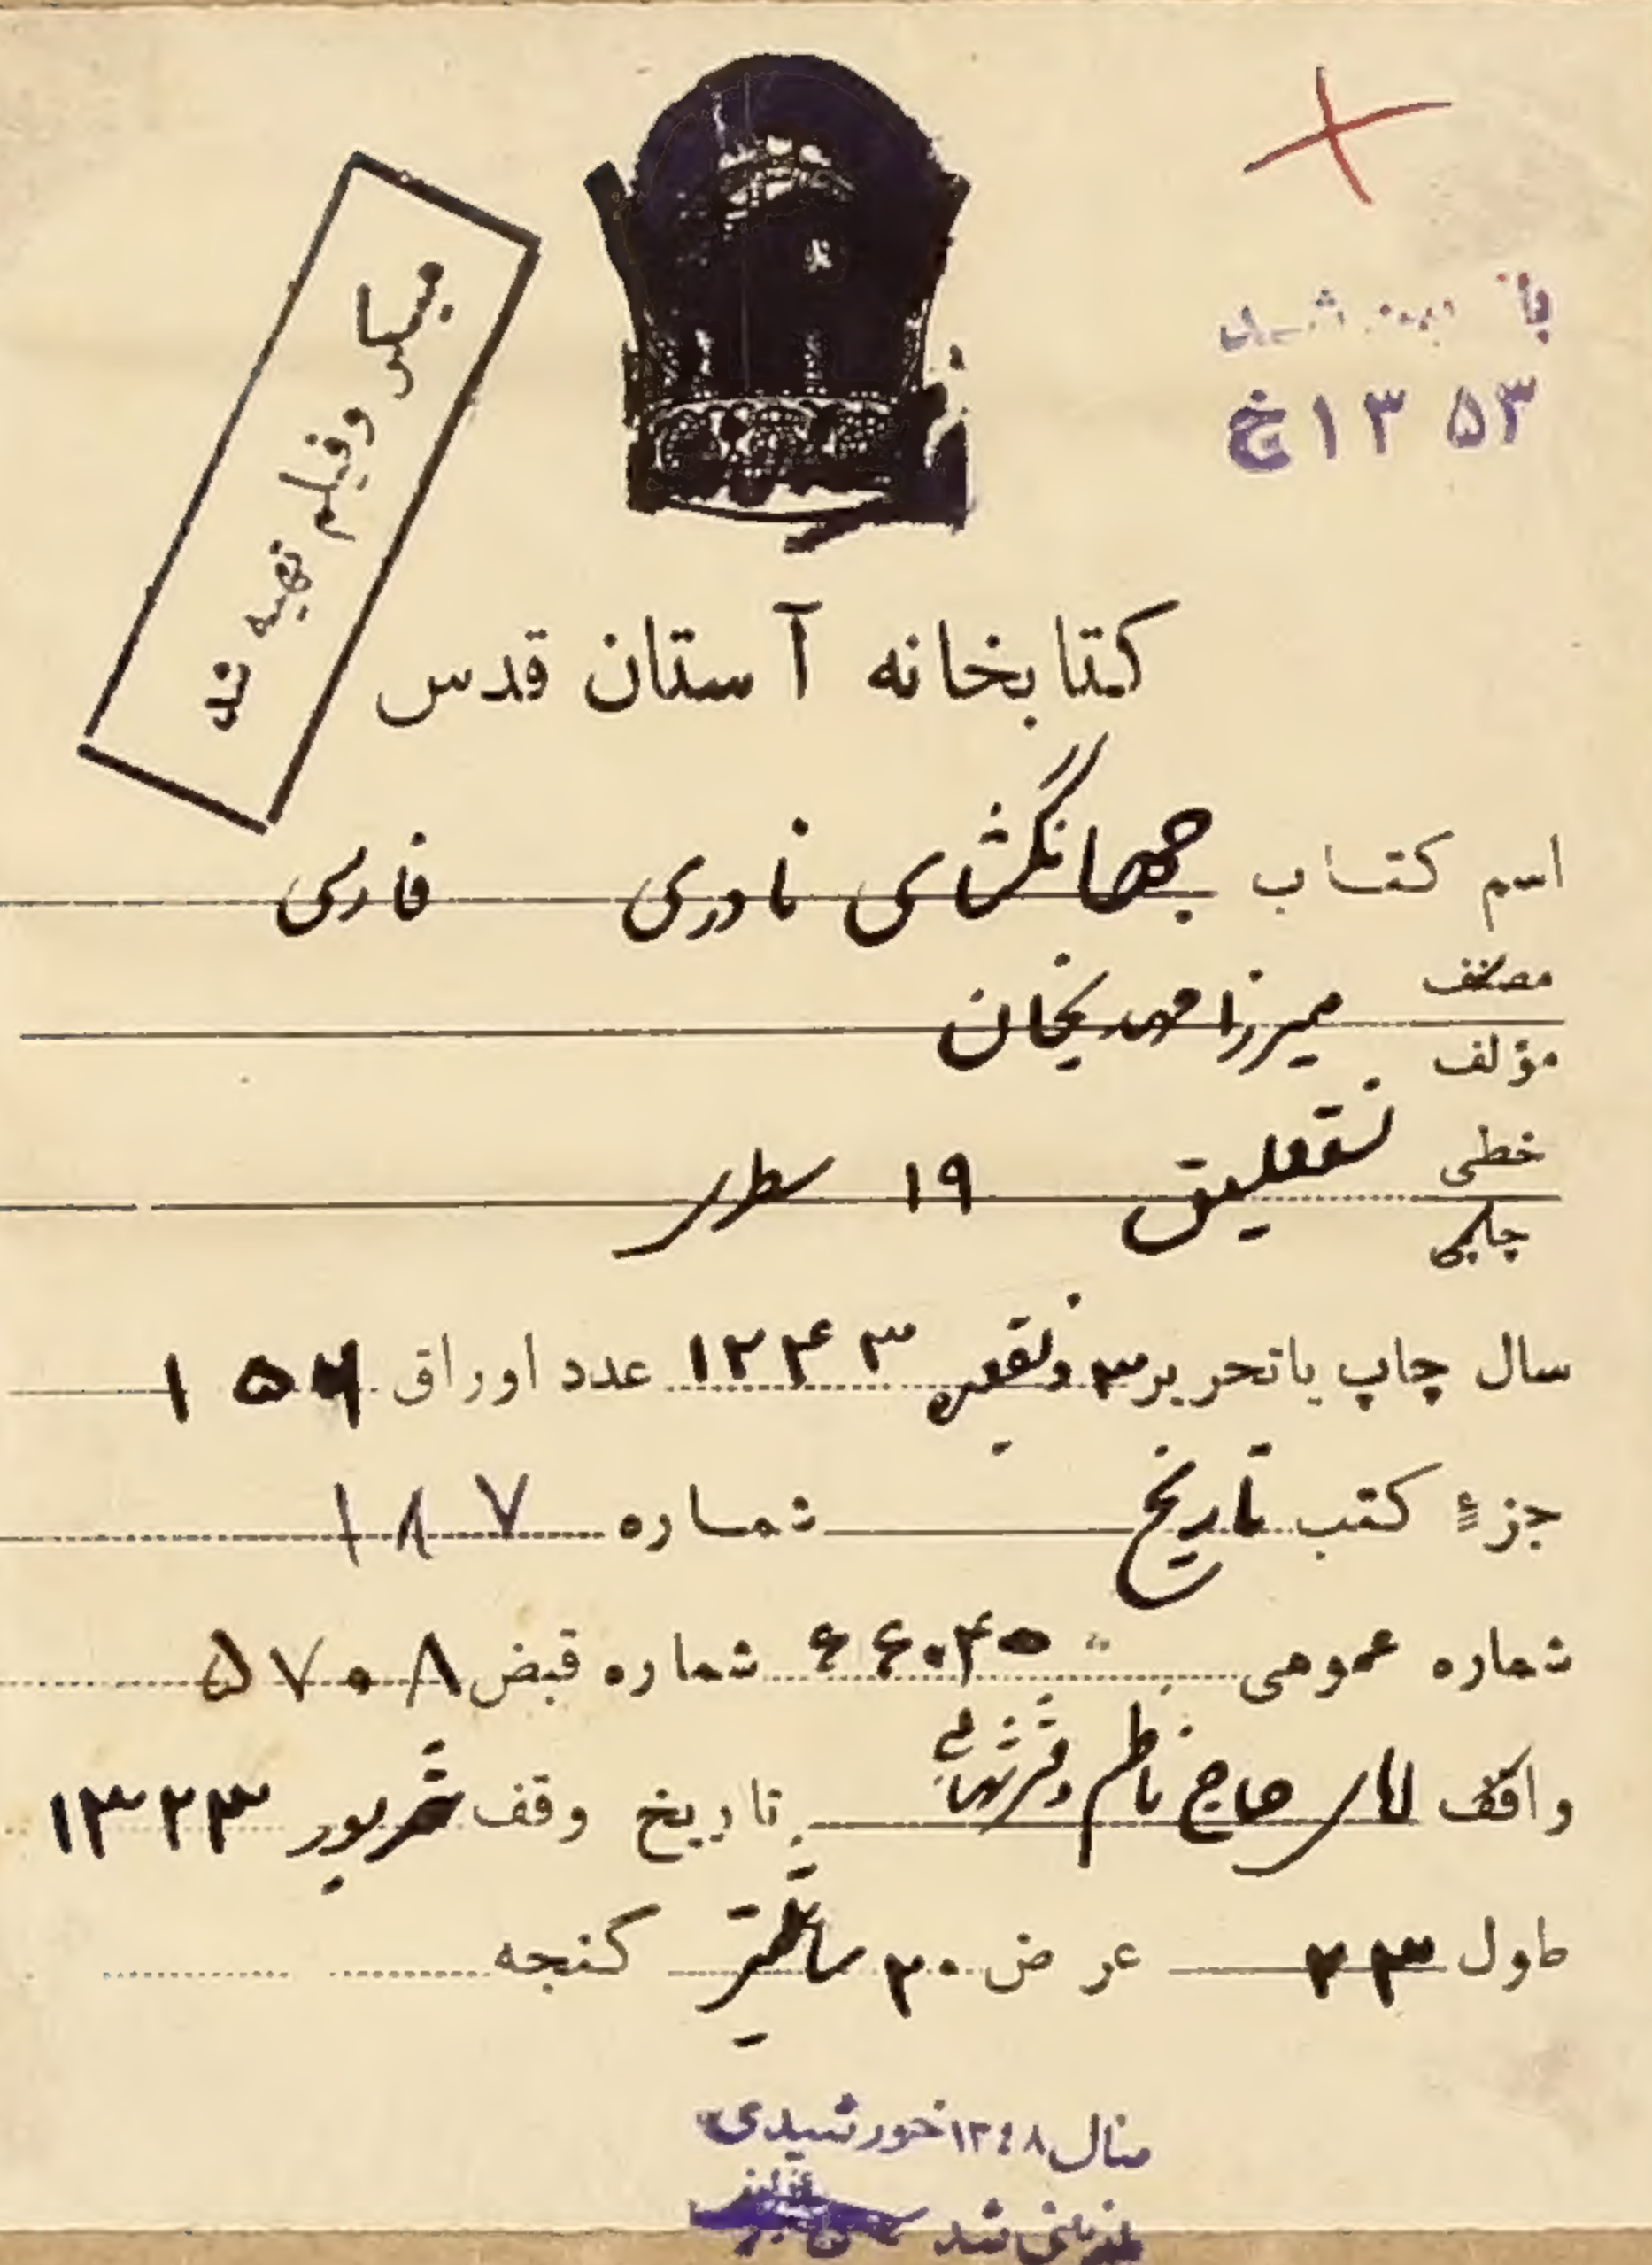 میکروفیلم تهیه شد
شد
۱۳۵۳ خ
کتابخانه آستان قدس
اسم کتاب جهانگشای نادری فارسی
مصنف
میرزا مهدیخان
مؤلف
خطی نستعلیق ۱۹ سطر
چاپی
سال چاپ یا تحریر ۳ ذیقعده ۱۲۴۳ عدد اوراق ۱۵۶
جزء کتب تاریخ شماره ۱۸۷
شماره عمومی ۶۶۰۴۰ شماره قبض ۵۷۰۸
واقف حاج ناظم تاریخ وقف شهریور ۱۳۲۳
طول ۲۳ عرض ۲۰ سانتیمتر گنجه
سال ۱۳۴۸ خورشیدی
بازبینی شد